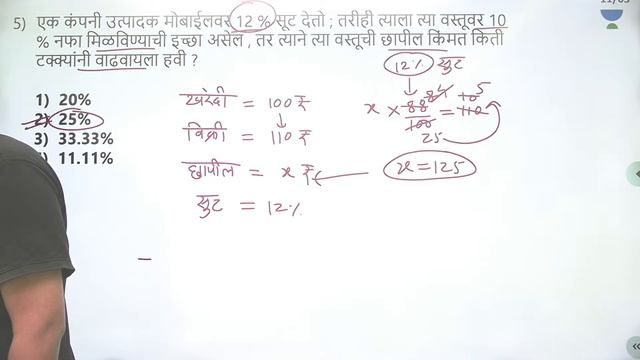 11/65
5) एक कंपनी उत्पादक मोबाईलवर 12 % सूट देतो ; तरीही त्याला त्या वस्तूवर 10
% नफा मिळविण्याची इच्छा असेल , तर त्याने त्या वस्तूची छापील किंमत किती
टक्क्यांनी वाढवायला हवी ?
12% सूट
1) 20%
2) 25%
3) 33.33%
11.11%
खरेदी = 100 ₹
विक्री = 110 ₹
छापील = x ₹
सुट = 12%
x × 88 / 100 = 110
25
x = 125